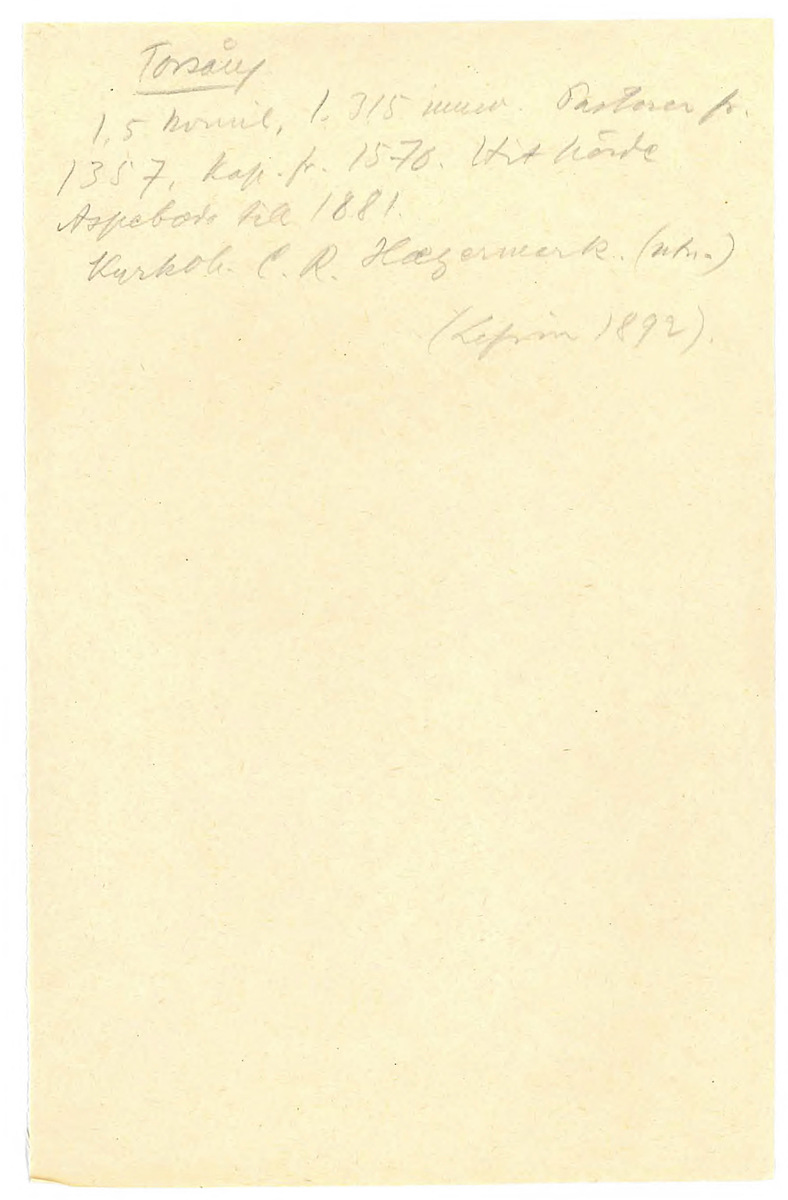 Torsång
1,5 kvmil, 1,315 inw. Pastorer fr.
1357, Kap. fr. 1570. Hit hörde
Aspeboda till 1881.
Kyrkoh. C. R. Hægermark.
1892).